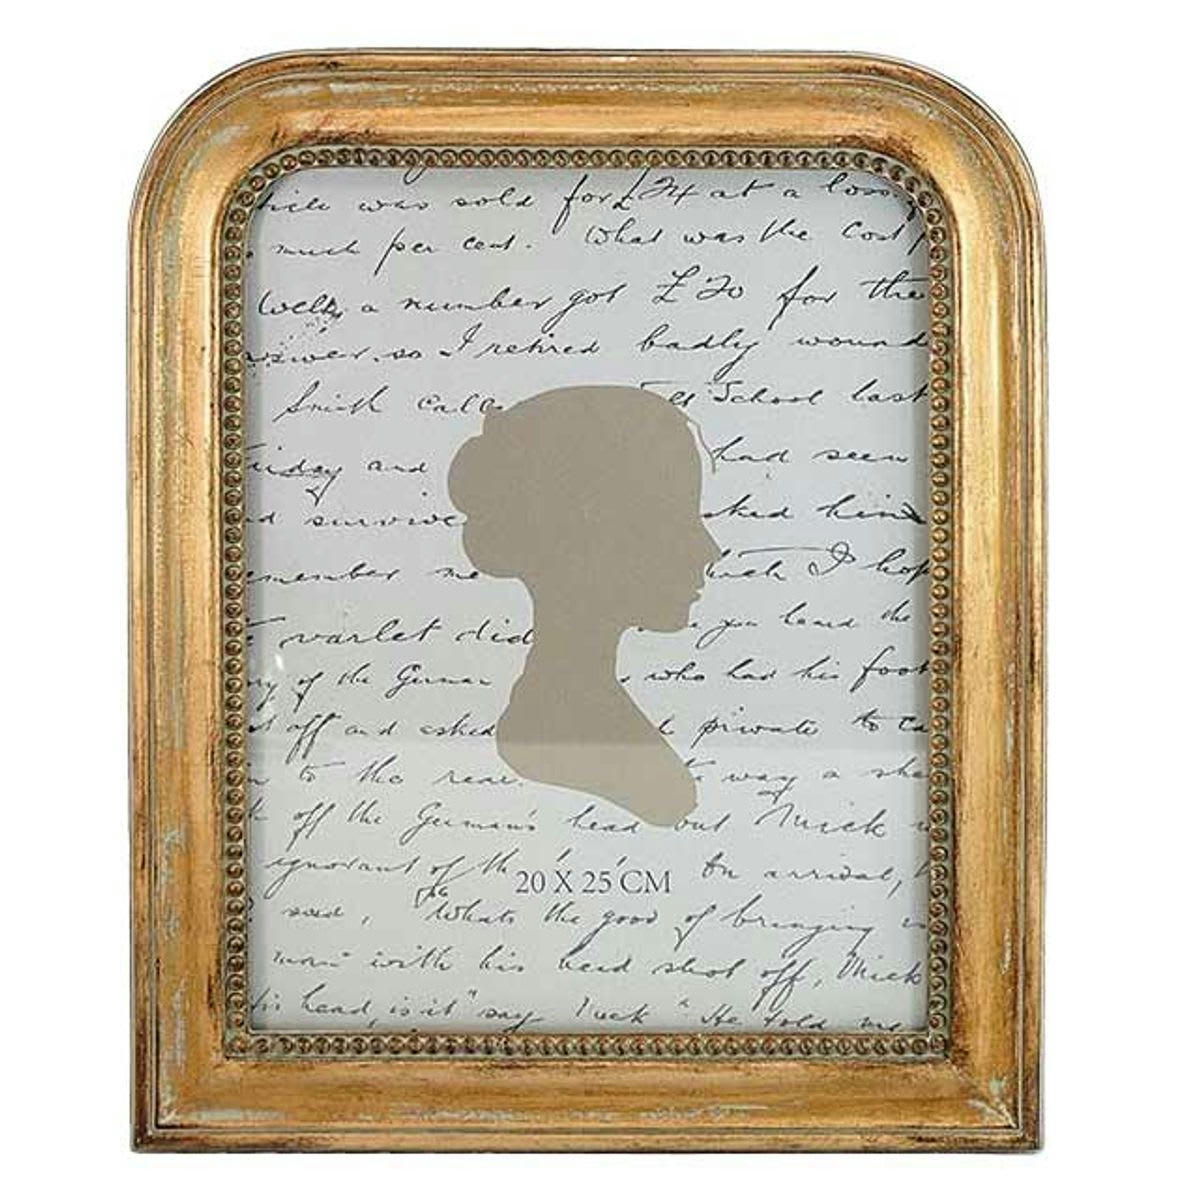 was sold for £74 at a loss
much per cent. What was the Cost
Well, a number got £70 for the
so I retired badly wound
Smith call School last
and had seen
survive sked him
emember me I hop
varlet did you heard the
of the German who had his foot
off and asked private to ca
to the rear. way a she
off the German's head but Mick
ignorant of th On arrival,
20 X 25 CM
said, "Whats the good of bringing
man with his head shot off, Mick
his head, is it" say Mick "He told me